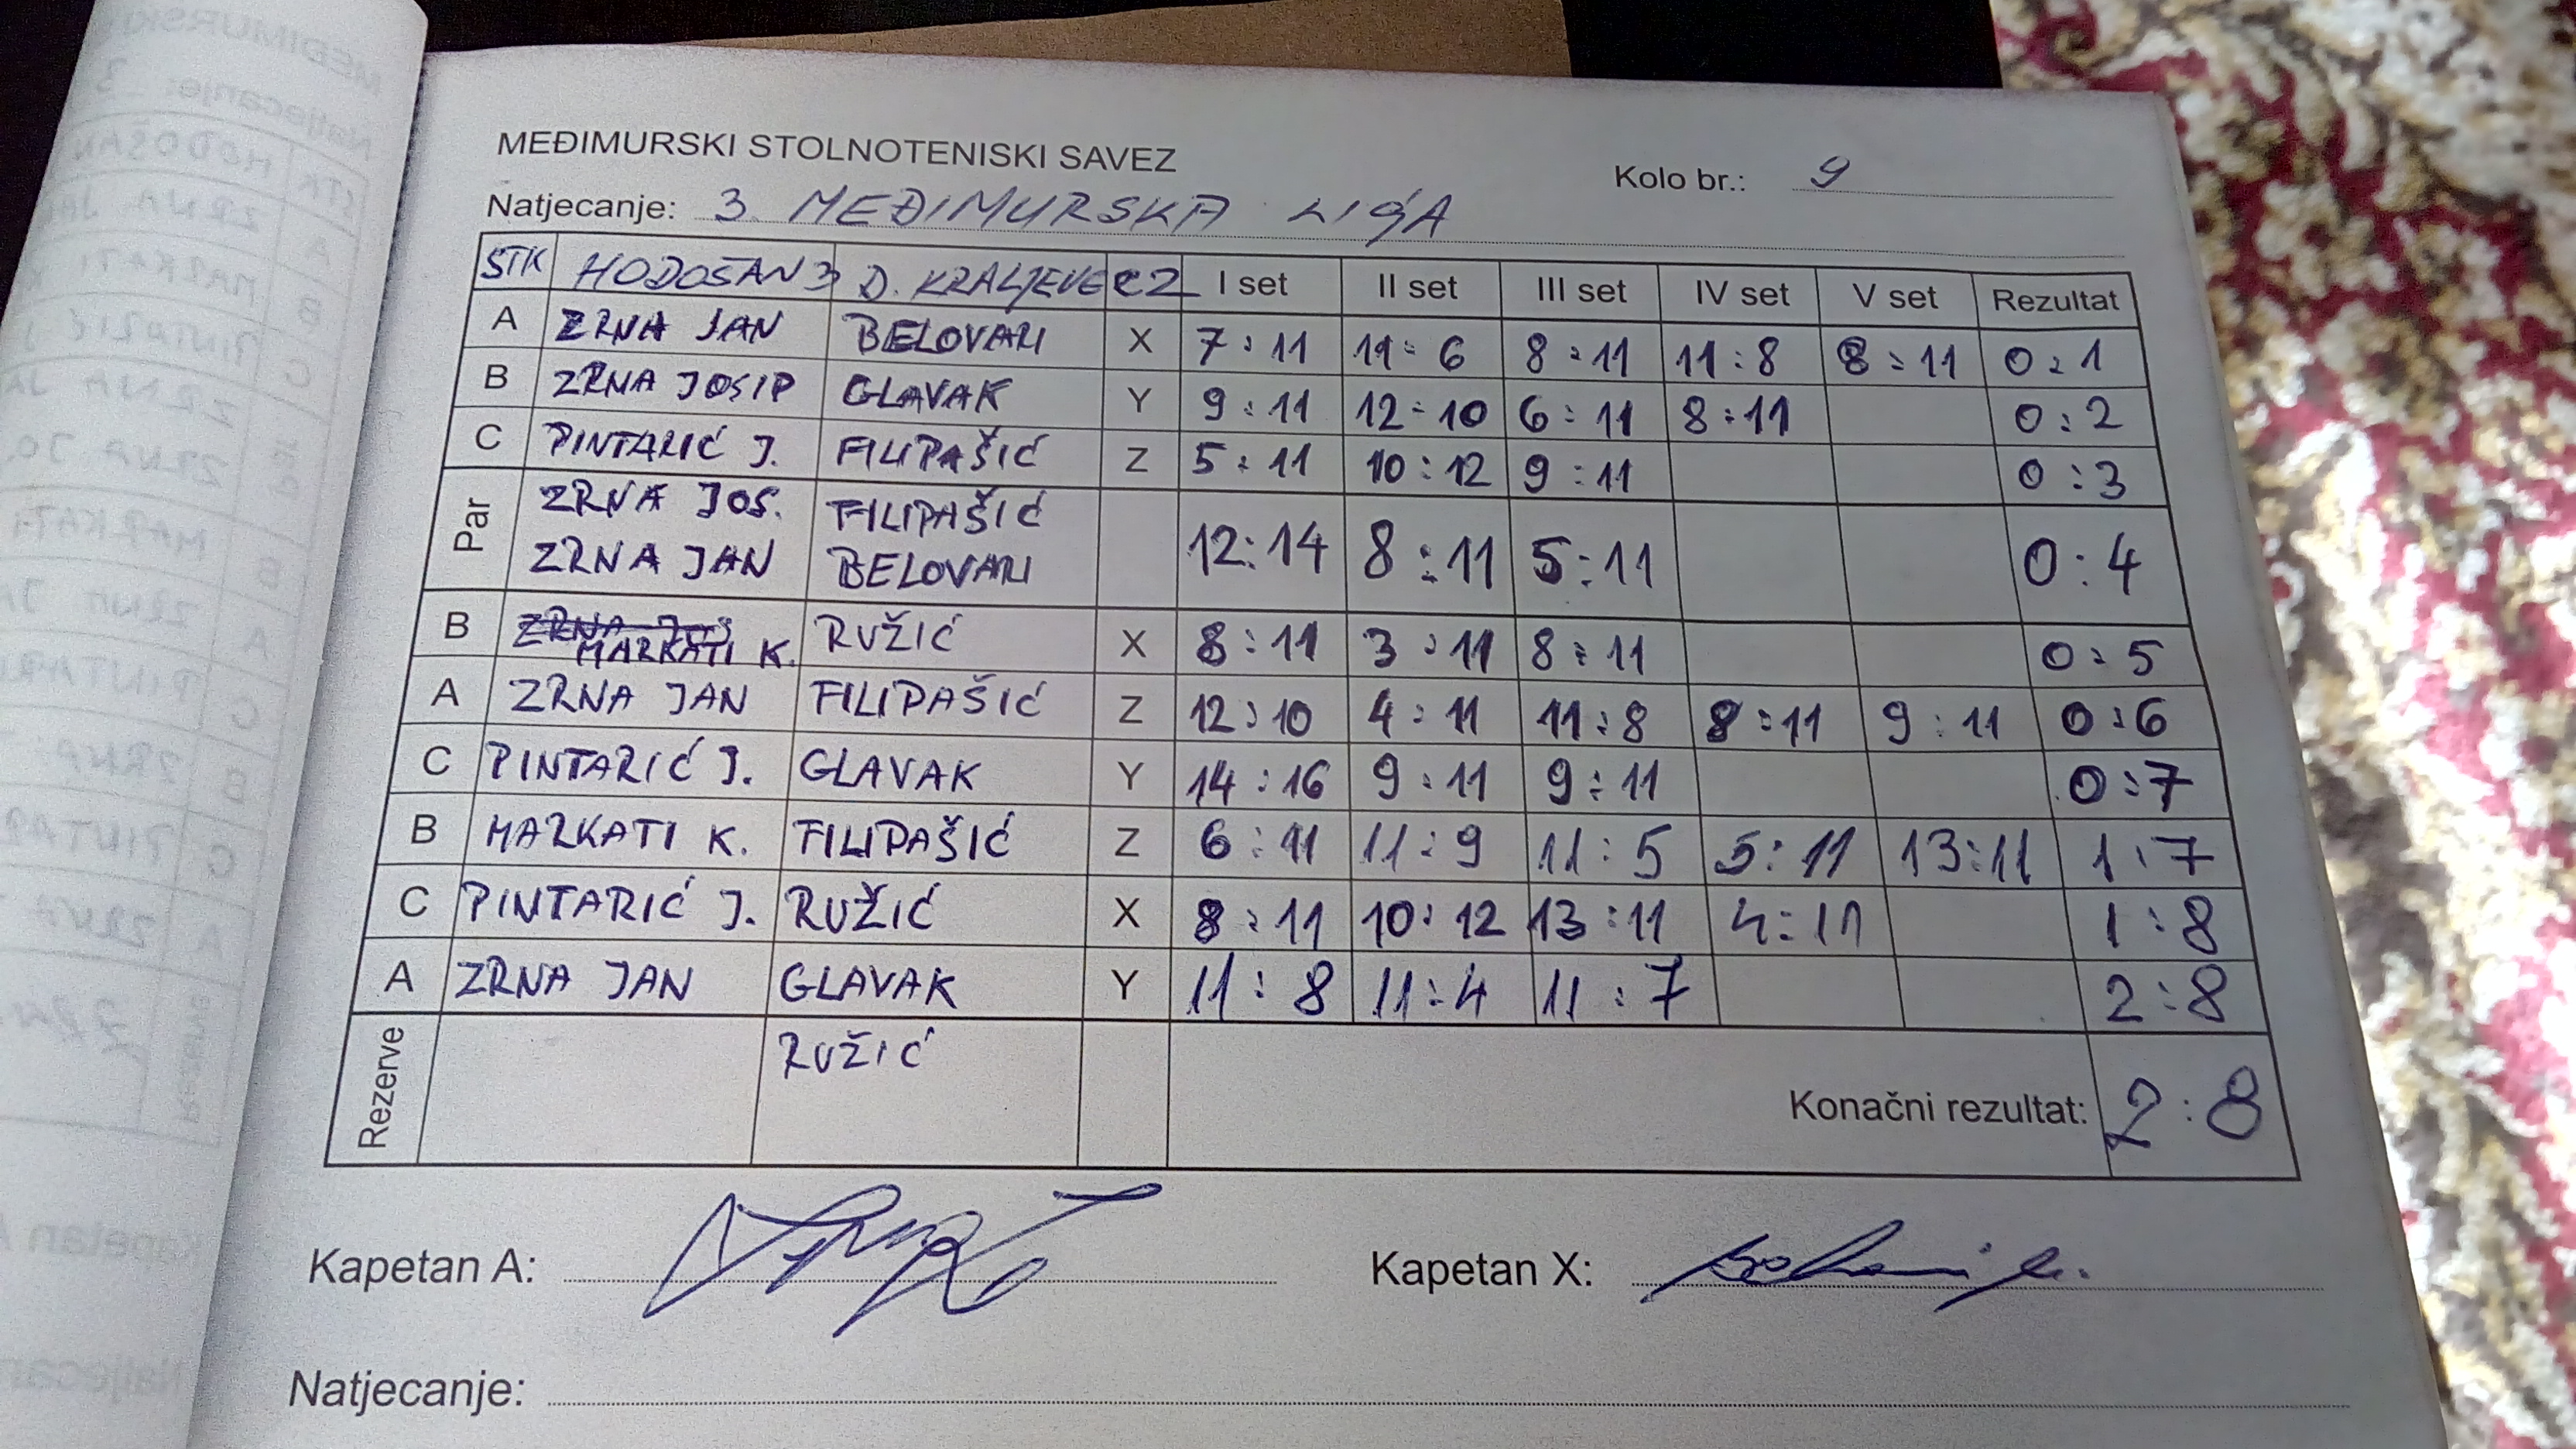 MEĐIMURSKI STOLNOTENISKI SAVEZ
Kolo br.: 9
Natjecanje: 3. MEĐIMURSKA LIGA
STK HODOŠAN 3 D. KRALJEVEC 2 I set II set III set IV set V set Rezultat
A ZRNA JAN BELOVARI X 7:11 11:6 8:11 11:8 8:11 0:1
B ZRNA JOSIP GLAVAK Y 9:11 12:10 6:11 8:11 0:2
C PINTARIĆ J. FILIPAŠIĆ Z 5:11 10:12 9:11 0:3
Par ZRNA JOS. FILIPAŠIĆ
ZRNA JAN BELOVARI 12:14 8:11 5:11 0:4
B ZRNA JOS
MARKATI K. RUŽIĆ X 8:11 3:11 8:11 0:5
A ZRNA JAN FILIPAŠIĆ Z 12:10 4:11 11:8 8:11 9:11 0:6
C PINTARIĆ J. GLAVAK Y 14:16 9:11 9:11 0:7
B MARKATI K. FILIPAŠIĆ Z 6:11 11:9 11:5 5:11 13:11 1:7
C PINTARIĆ J. RUŽIĆ X 8:11 10:12 13:11 4:11 1:8
A ZRNA JAN GLAVAK Y 11:8 11:4 11:7 2:8
Rezerve RUŽIĆ
Konačni rezultat: 2:8
Kapetan A: Kapetan X:
Natjecanje: